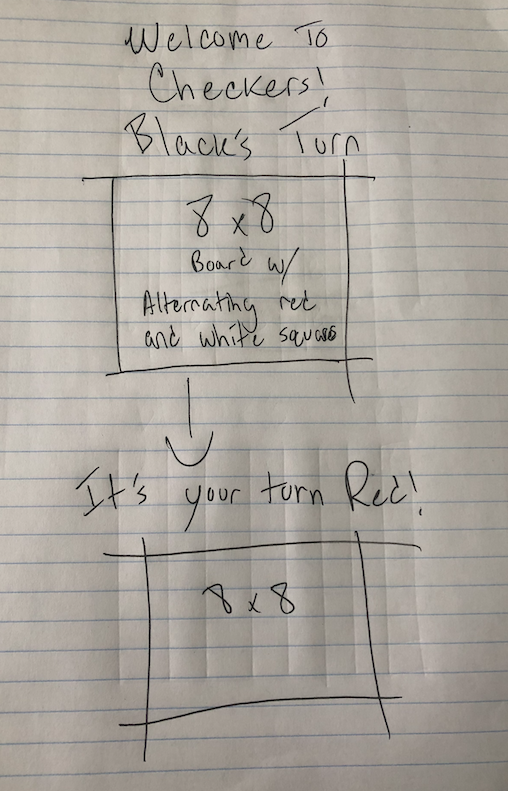 Welcome To
Checkers!
Black's Turn
8 x 8
Board w/
Alternating red
and white squares
It's your turn Red!
8 x 8